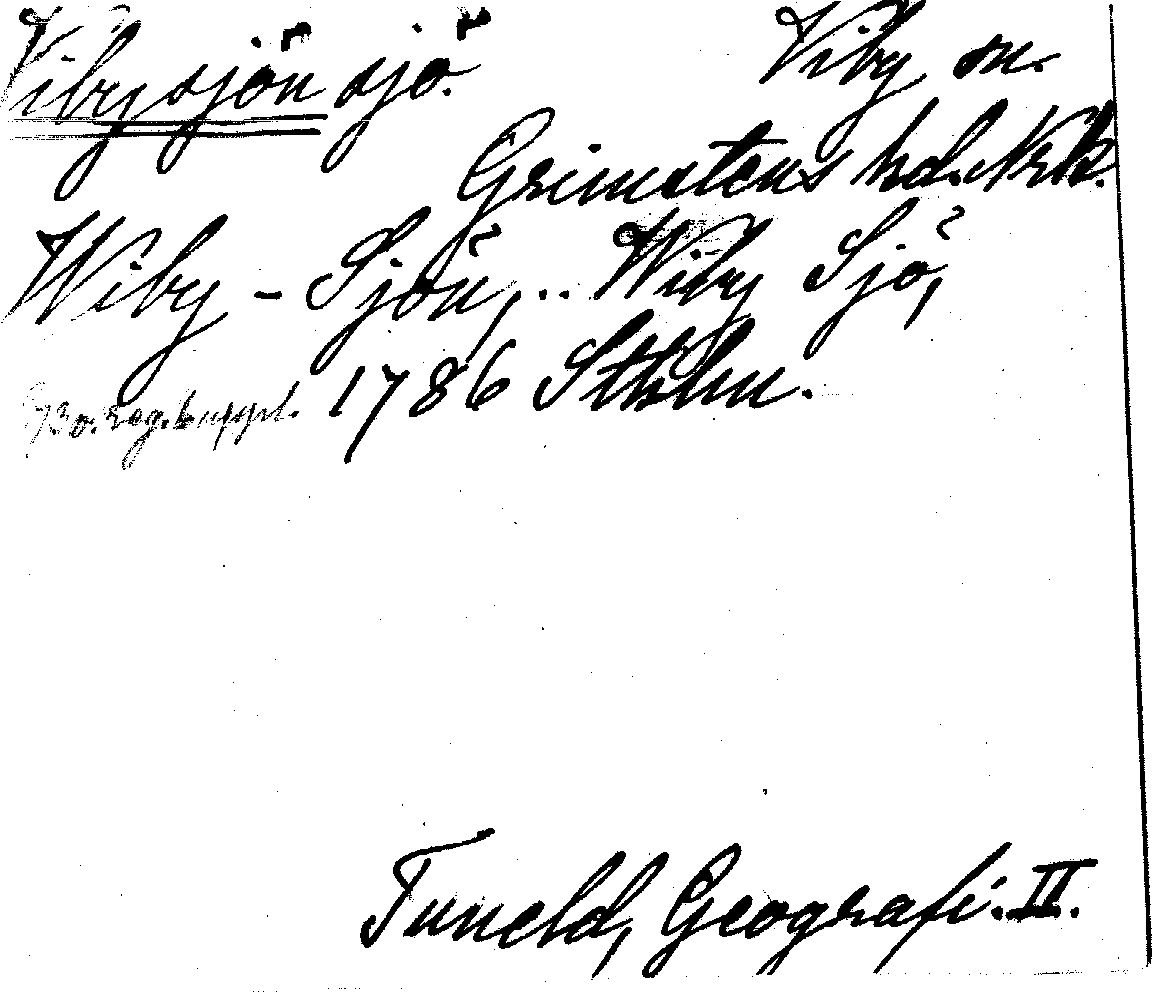 Vibysjön sjö. Viby sn.
Grimstens hd. Nrk.
Wiby - Sjön, .. Wiby Sjö,
730. reg. suppl. 1786 Sthlm.
Tuneld, Geografi. II.